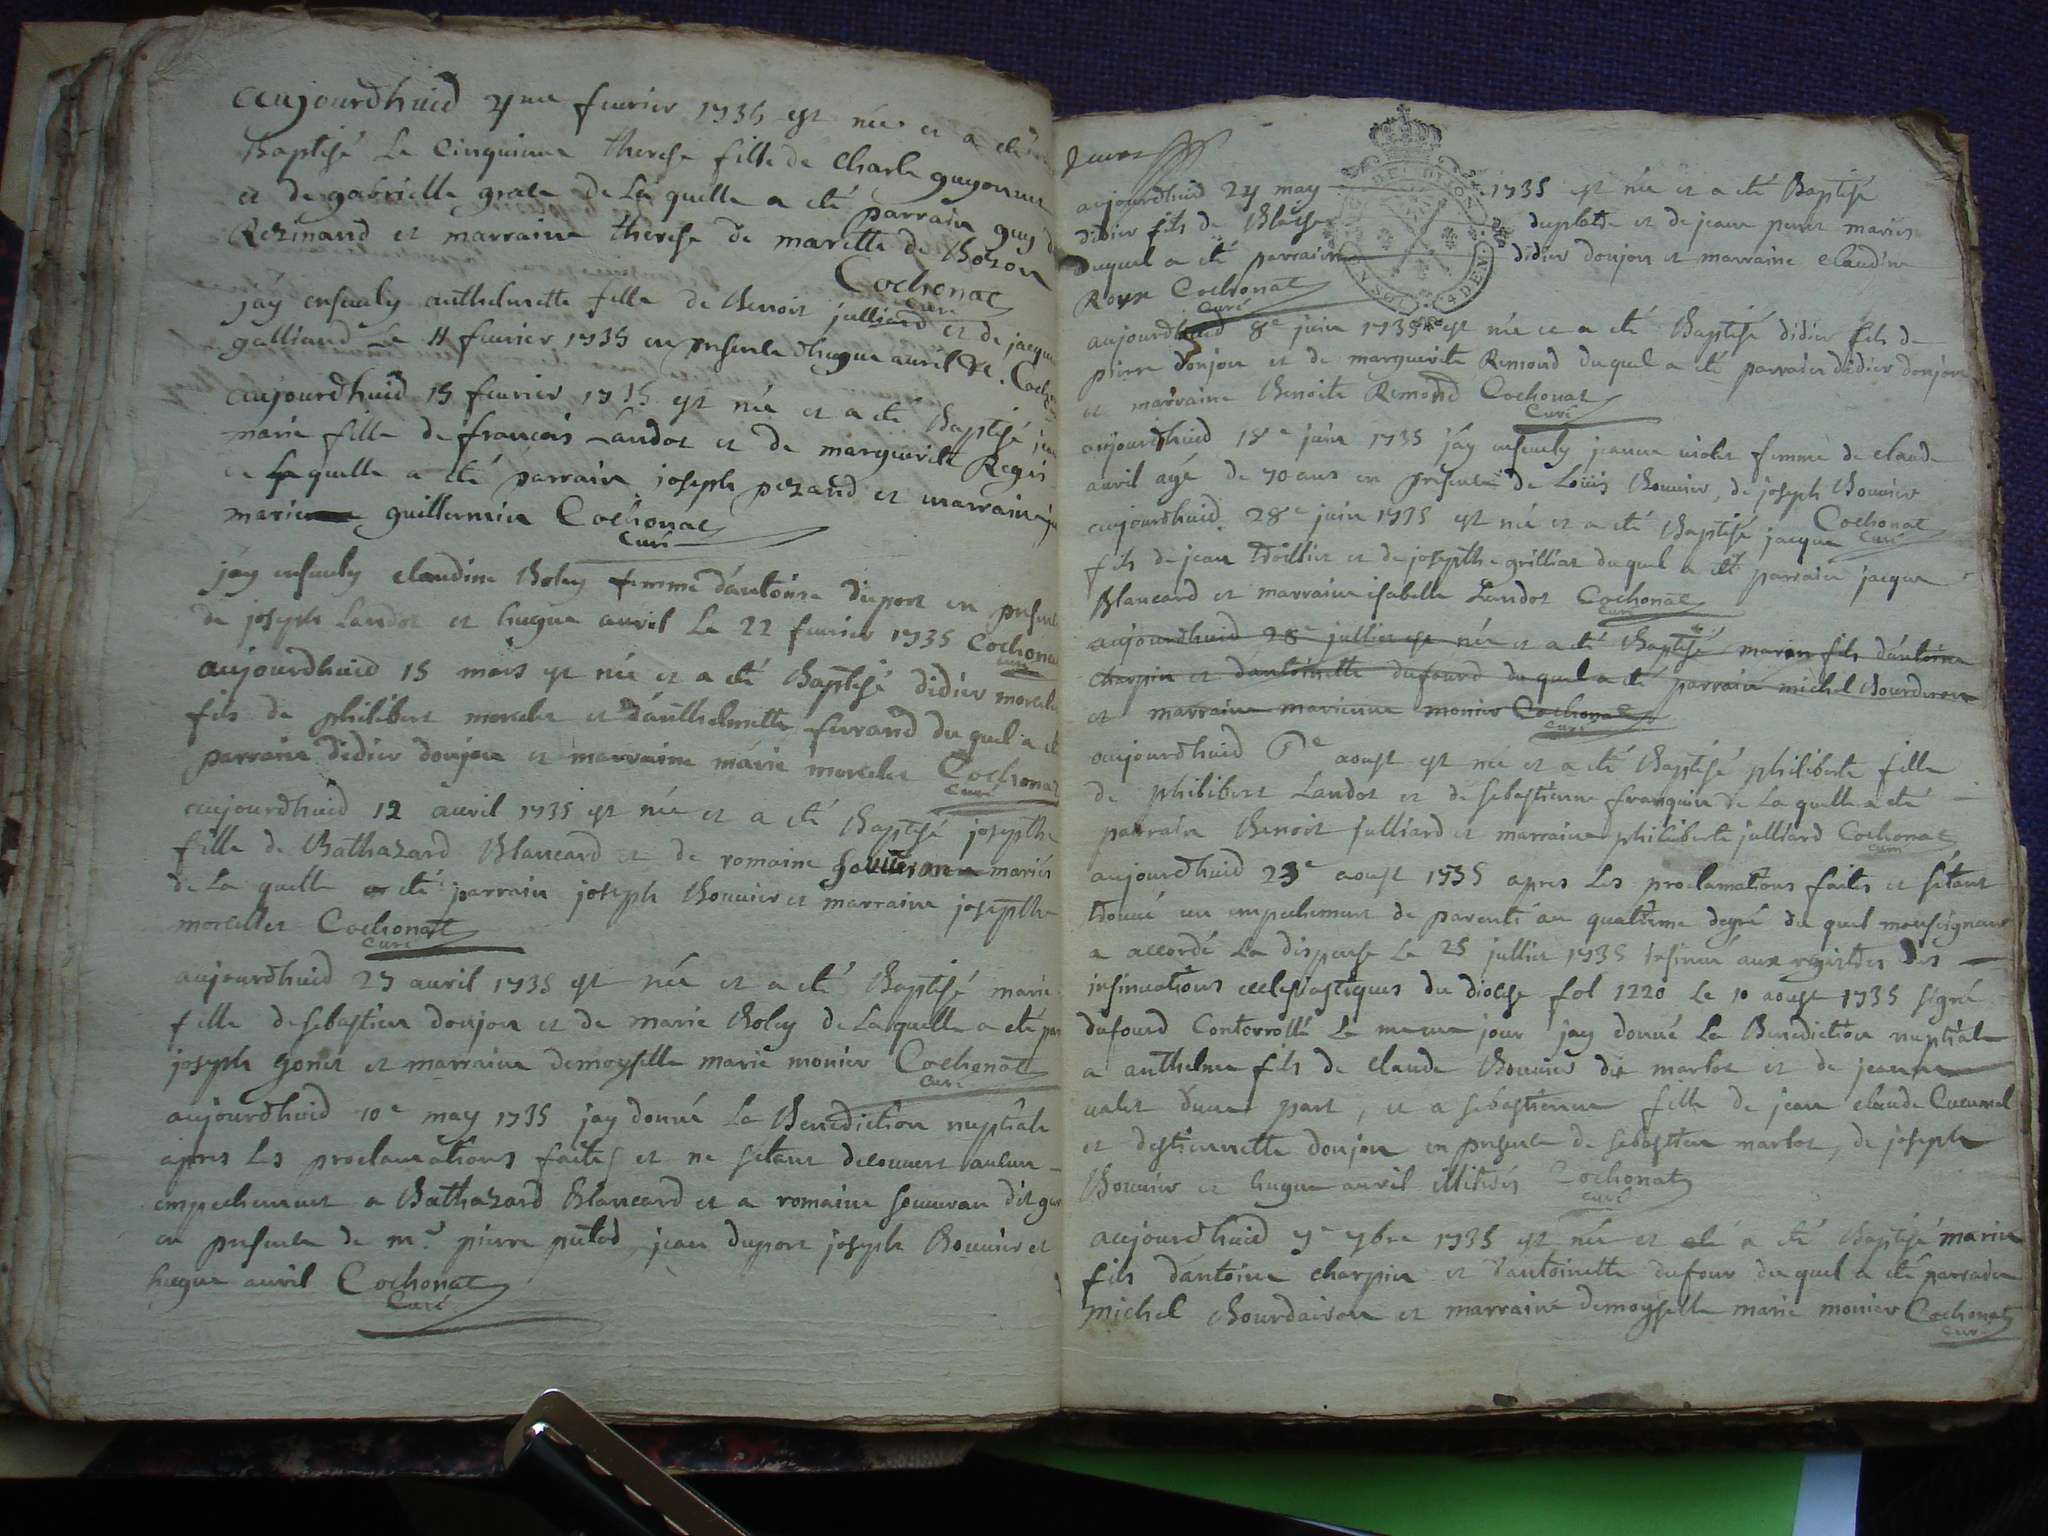 aujourdhuid 4me feuvier 1735 est née et a eté
Baptisé le Cinquieme therese fille de Charle guyonnet
et de gabrielle grata de la quelle a eté parrain guy
Rezinand et marraine therese de marette de Boson
Cochonat
curé
jay enseuely anthelmette fille de Benoit julliard et de jacque
galliand Le 11 feuvier 1735 en presence dhugue auril &c. Coch
aujourdhuid 15 feuvier 1735 est née et a eté Baptisé
marie fille de francois Landot et de marguerite Regis
de la quelle a eté parrain joseph pezand et marraine
marie guillermin Cochonat
curé
jay enseuely claudine Boley femme dántoine duport en presence
de joseph Landot et hugue auril Le 22 feuvier 1735 Cochona
curé
aujourdhuid 15 mars est née et a eté Baptisé didier morele
fils de philibert morelet et dánthelmette ferrand du quel a
parrain didier donjon et marraine marie morelet Cochonat
curé
aujourdhuid 12 auril 1735 est née et a eté Baptisé josepthe
fille de Bathazard Blancard et de romaine souueran mariés
de La quelle a eté parrain joseph Bouuier et marraine josepthe
morellet Cochonat
curé
aujourdhuid 27 auril 1735 est née et a eté Baptisé marie
fille de sebastien donjon et de marie Boley de Laquelle a eté par
joseph gonet et marraine demoyselle marie monier Cochonat
curé
aujourdhuid 10e may 1735 jay donné La Benediction nuptiale
apres Les proclamations faites et ne sétant decouuert aucun
empechement a Bathazard Blancard et a romaine souueran dit
en presence de mre pierre putod jean duport joseph Bouuier et
hugue auril Cochonat
curé
aujourdhuid 24 may 1735 est née et a eté Baptisé
didier fils de Blaise duplatre et de jeane perret mariés
duquel a eté parrain didier donjon et marraine claudine
Roux Cochonat
curé
aujourdhuid 8e juin 1735 est née et a eté Baptisé didier fils de
pierre donjon et de marguerite Remond duquel a eté parrain didier donjon
et marraine Benoite Remond Cochonat
curé
aujourdhuid 18e juin 1735 jáy enseuely jeanne uiolet femme de claude
auril agé de 70 ans en presence de Loüis Bouuier, de joseph Bouuier
Cochonat
curé
aujourdhuid 28e juin 1735 est née et a eté Baptisé jacque
fils de jean trollier et de josepthe grilliat duquel a eté parrain jacque
Blancard et marraine isabelle Landot Cochonat
curé
aujourdhuid 28e jullier est née et a eté Baptisé marin fils dántoine
charpin et dántoinette dufourd duquel a eté parrain michel Bourdiron
et marraine marienne monier Cochonat
curé
aujourdhuid aoust est née et a eté Baptisé philiberte fille
de philibert Landot et de sebastienne franquin de La quelle a eté
parrain Benoit julliard et marraine philiberte julliard Cochonat
curé
aujourdhuid 23e aoust 1735 apres Les proclamations faites et sétant
trouué un empechement de parenté au quatrieme degré du quel monseigneur
a accordé La dispense Le 25 jullier 1735 insinue aux registres des
insinuations ecclesiastiques du diocese fol 1220 Le 10 aoust 1735 signé
dufourd Contorrollé Le meme jour jay donné La Benediction nuptiale
a anthelme fils de claude Bouuier dit marlot et de jeanne
ualet dune part, et a sebastienne fille de jean claude Cucumel
et destiennette donjon en presence de sebastien marlot, de joseph
Bouuier et hugue auril illiterés Cochonat
curé
aujourdhuid 7e 7bre 1735 est née et a eté Baptisé marin
fils dántoine charpin et dántoinette dufour du quel a eté parrain
michel Bourdairon et marraine demoyselle marie monier Cochonat
curé